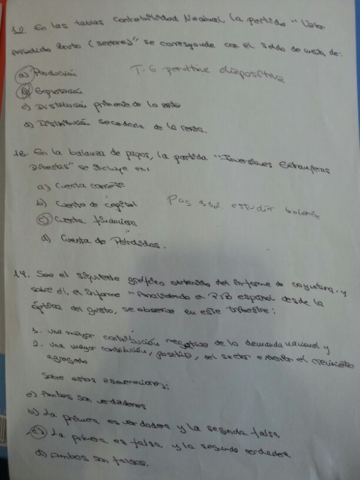 12. En las tablas Contabilidad Nacional, la partida "Valor
producido bruto (sectores)" se corresponde con el saldo de la cuenta de:
a) Producción
T.6 penúltima diapositiva
b) Explotación
c) Distribución primaria de la renta
d) Distribución secundaria de la renta.
13. En la balanza de pagos, la partida "Inversiones Extranjeras
Directas" se incluye en:
a) Cuenta corriente
b) Cuenta de capital
c) Cuenta financiera
d) Cuenta de Petrodos.
14. Sea el siguiente gráfico obtenido del Informe de coyuntura, y
sobre él, el informe " P.I.B español desde la
óptica del gasto, se observa en este trimestre:
1. una mayor contribución negativa de la demanda nacional y
2. una mayor contribución, positiva, del sector exterior al crecimiento
agregado
Sobre estas observaciones:
a) Ambas son verdaderas
b) La primera es verdadera y la segunda falsa
c) La primera es falsa y la segunda verdadera
d) Ambas son falsas.